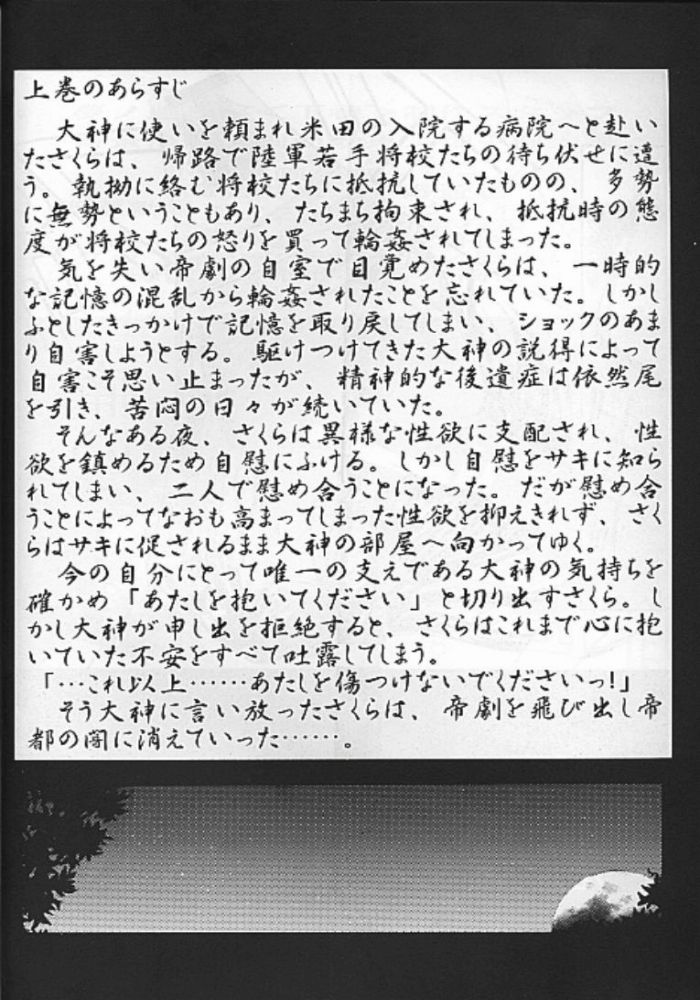 上巻のあらすじ
　大神に使いを頼まれ米田の入院する病院へと赴い
たさくらは、帰路で陸軍若手将校たちの待ち伏せに遭
う。執拗に絡む将校たちに抵抗していたものの、多勢
に無勢ということもあり、たちまち拘束され、抵抗時の態
度が将校たちの怒りを買って輪姦されてしまった。
　気を失い帝劇の自室で目覚めたさくらは、一時的
な記憶の混乱から輪姦されたことを忘れていた。しかし
ふとしたきっかけで記憶を取り戻してしまい、ショックのあま
り自害しようとする。駆けつけてきた大神の説得によって
自害こそ思い止まったが、精神的な後遺症は依然尾
を引き、苦悶の日々が続いていた。
　そんなある夜、さくらは異様な性欲に支配され、性
欲を鎮めるため自慰にふける。しかし自慰をサキに知ら
れてしまい、二人で慰め合うことになった。だが慰め合
うことによってなおも高まってしまった性欲を抑えきれず、さく
らはサキに促されるまま大神の部屋へ向かってゆく。
　今の自分にとって唯一の支えである大神の気持ちを
確かめ「あたしを抱いてください」と切り出すさくら。し
かし大神が申し出を拒絶すると、さくらはこれまで心に抱
いていた不安をすべて吐露してしまう。
「…これ以上……あたしを傷つけないでくださいっ!」
　そう大神に言い放ったさくらは、帝劇を飛び出し帝
都の闇に消えていった……。